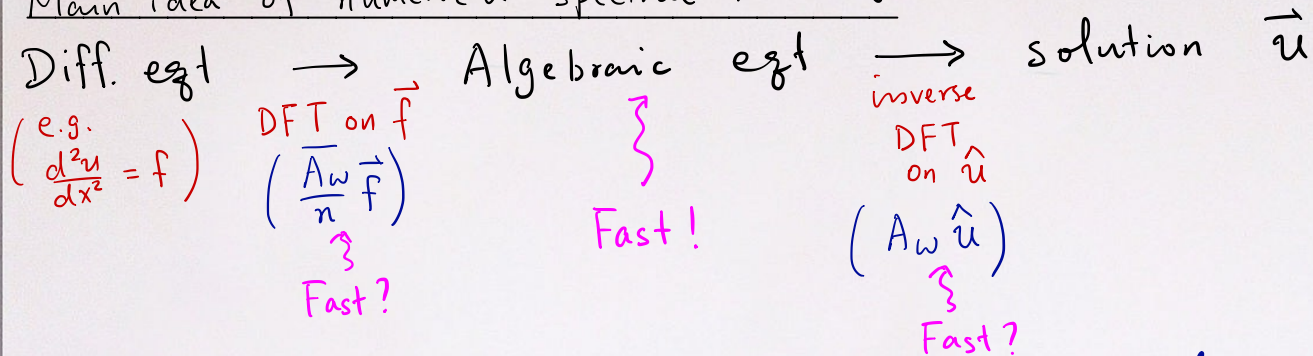 Main idea of numerical spectral
Diff. eqt → Algebraic eqt → solution \vec{u}
(e.g. \frac{d^2u}{dx^2} = f)
DFT on \vec{f}
(\frac{\overline{A_w}}{n} \vec{f})
Fast?
Fast!
inverse
DFT
on \hat{u}
(A_w \hat{u})
Fast?